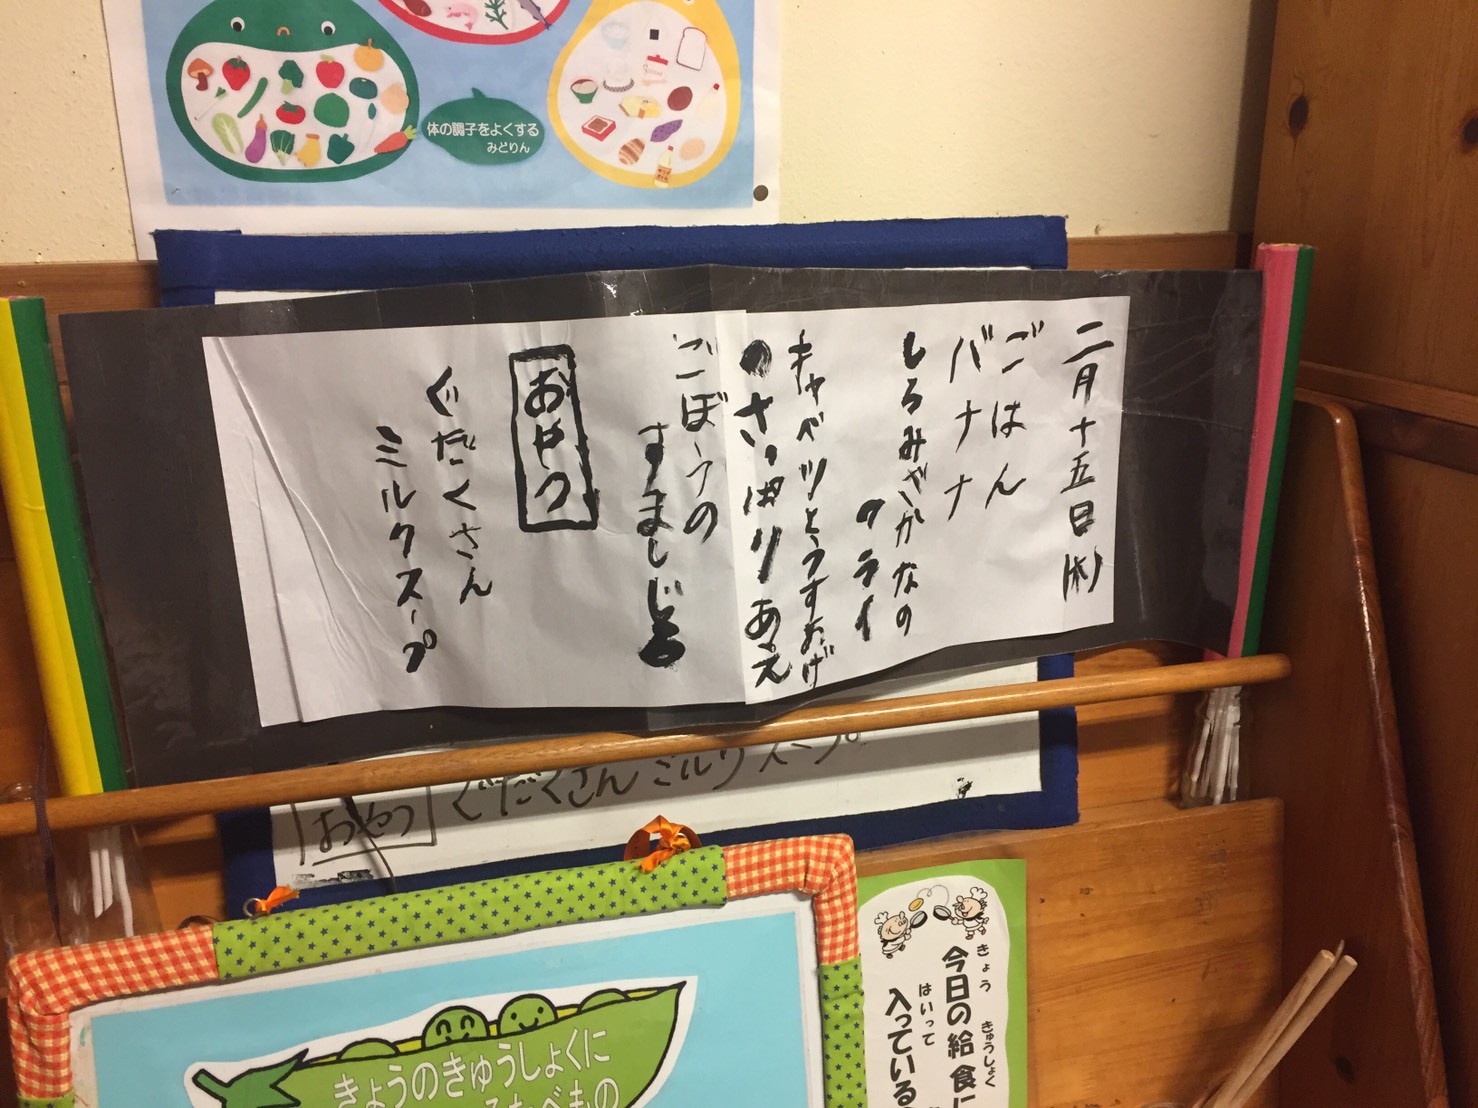 体の調子をよくする
みどりん
二月十五日(水)
ごはん
バナナ
しろみざかなの
フライ
キャベツとうすあげ
のさっぱりあえ
ごぼうの
すましじる
おやつ
ぐだくさん
ミルクスープ
おやつ ぐだくさんミルクスープ
きょうのきゅうしょくに
たべもの
きょう きゅうしょく
今日の給食に
はいって
入っている